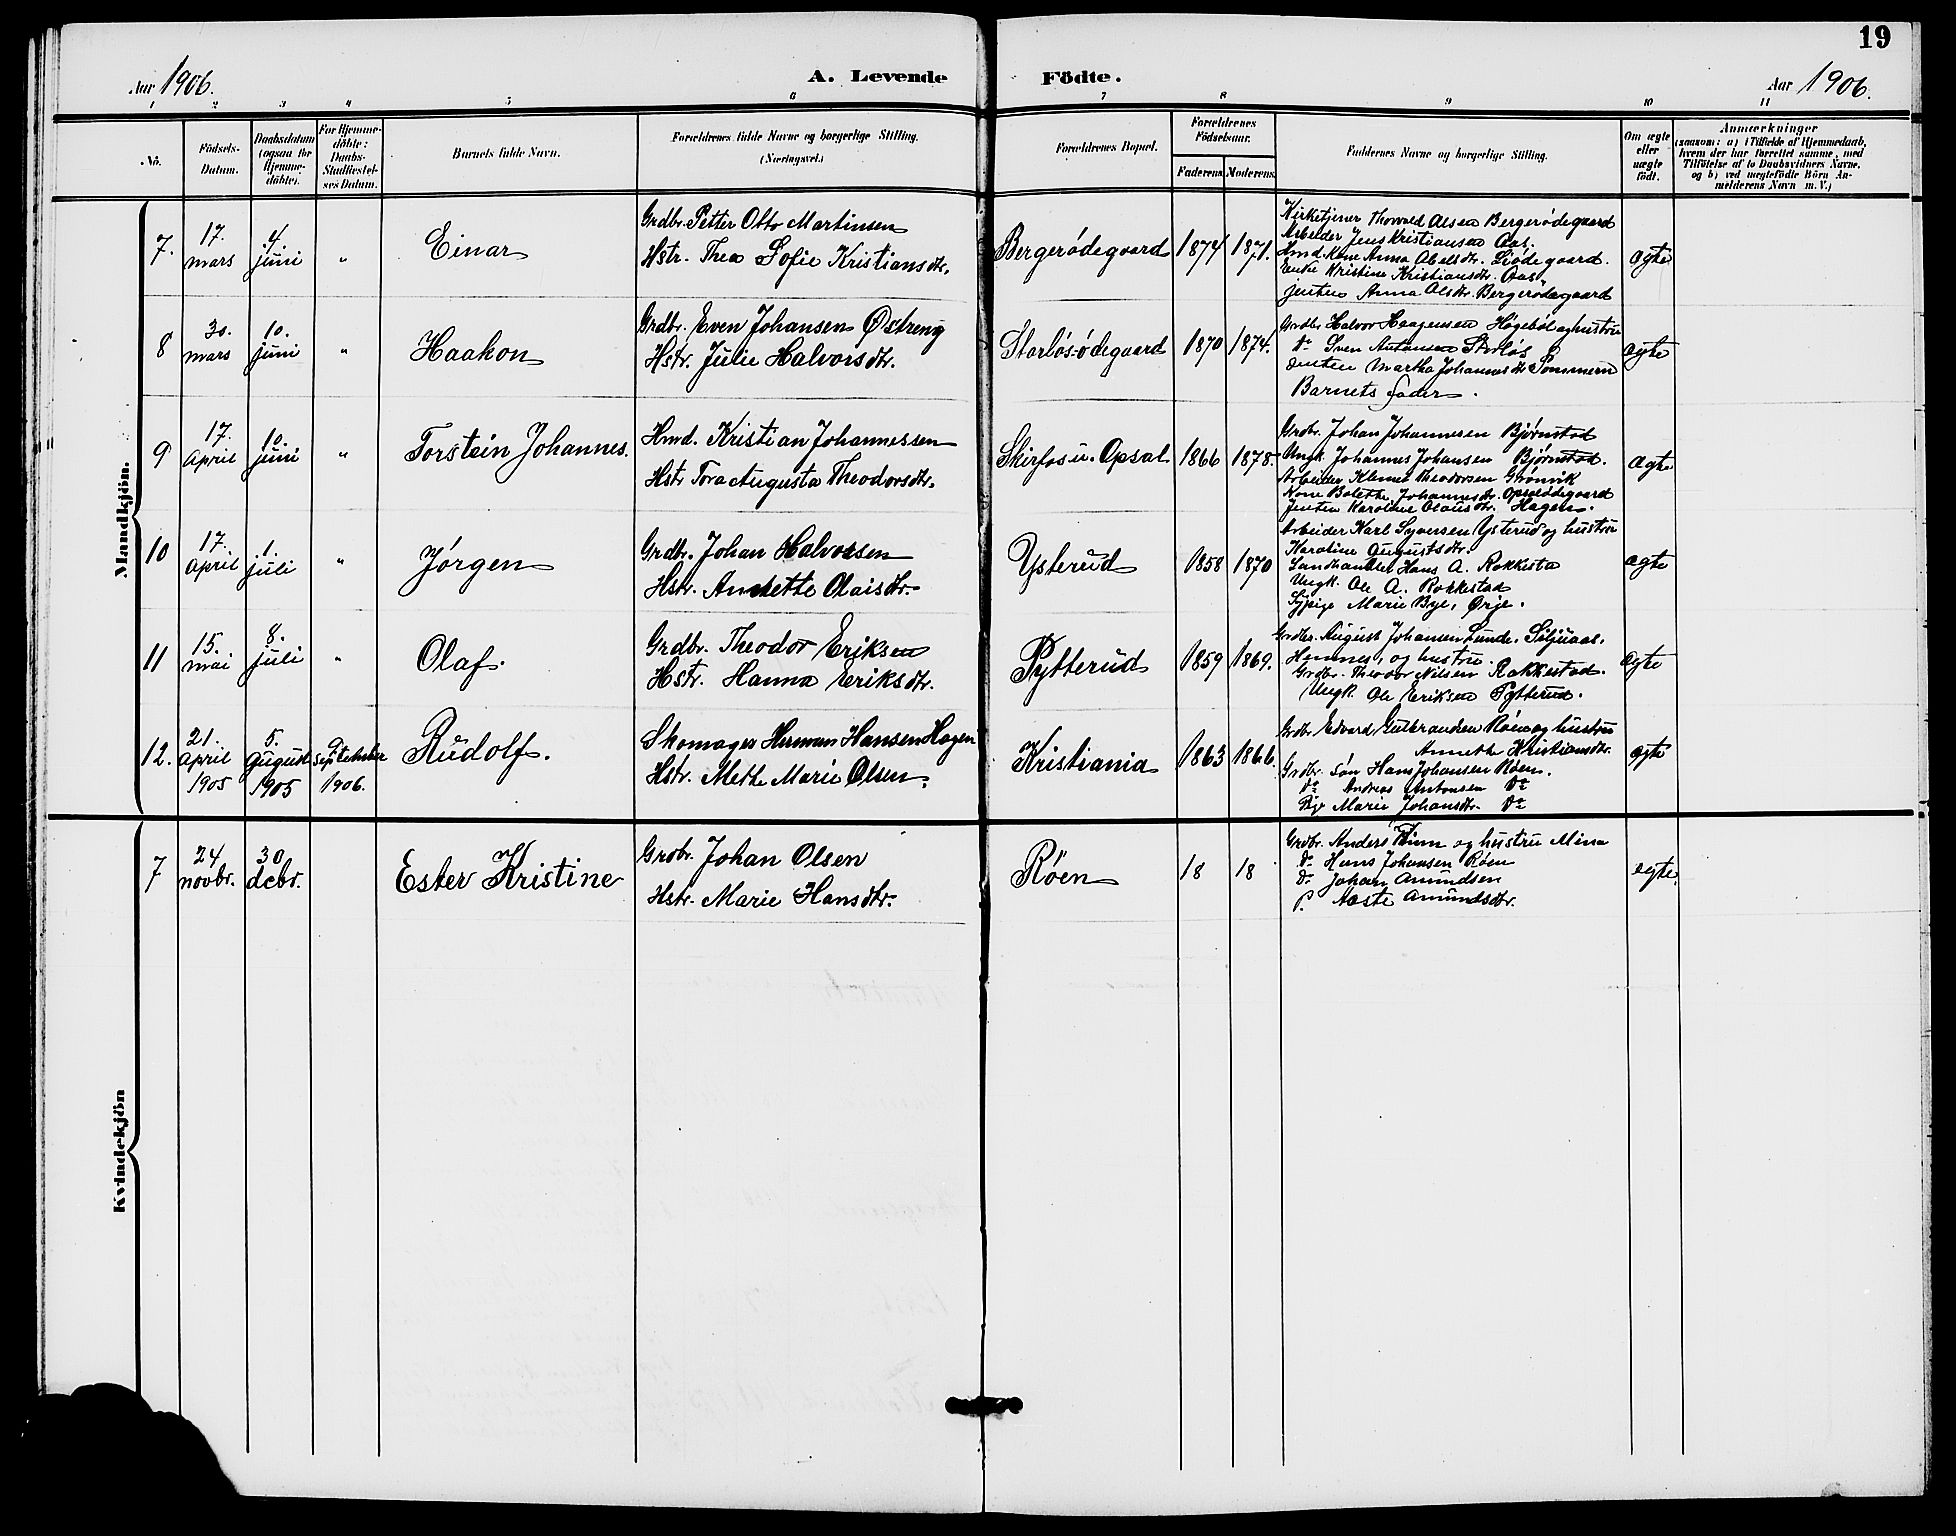 19
Aar 1906.
A. Levende Födte.
Aar 1906.
1 2 3 4 5 6 7 8 9 10 11
No.
Födsels-Datum.
Daabsdatum (ogsaa for Hjemmedöbte).
For Hjemmedöbte: Daabs-Stadfæstelses Datum.
Barnets fulde Navn.
Forældrenes fulde Navne og borgerlige Stilling. (Næringsvei.)
Forældrenes Bopæl.
Forældrenes Födselsaar.
Faderens. Moderens.
Faddernes Navne og borgerlige Stilling.
Om ægte eller uægte födt.
Anmærkninger
(saasom: a) i Tilfælde af Hjemmedaab, hvem der har forrettet samme, med Tilföielse af to Daabsvidners Navne, og b) ved uægtefödte Börn Anmelderens Navn m. V.)
Mandkjön.
7. 17. mars 4. juni " Einar
Grdbr. Petter Otto Martinsen
Hstr. Thea Sofie Kristiansdtr.
Bergerødegaard 1874 1871.
Kirketjener Thorvald Olsen Bergerødegaard
Arbeider Jens Kristiansen Aas.
Hmd. Kone Anna Abelsdtr. ødegaard.
Enke Kristine Kristiansdtr. Aas
Jenten Anna Olsdtr. Bergerødegaard
ægte
8 30. mars 10. juni " Haakon
Grdbr. Even Johansen Østreng
Hstr. Julie Halvorsdtr.
Storløs-ødegaard 1870 1874.
Grdbr Halvor Haagensen Høgebøl og hustru
do Sven Antonsen Storløs
Jenten Martha Johannesdtr Sommern
Barnets fader.
ægte
9 17. April 10. juni " Torstein Johannes.
Hmd. Kristian Johannessen
Hstr Tora Augusta Theodorsdtr.
Skirfos u. Opsal 1866 1878.
Grdbr. Johan Johannesen Bjørnstad
Ungk. Johannes Johansen Bjørnstad.
Arbeider Klemet Theodorsen Grønvik
Kone Bolette Johannesdtr. Opsalødegaard
Jenten Karoline Olausdtr. Hagen.
ægte
10 17. April 1. juli " Jørgen
Grdbr. Johan Halvorsen
Hstr. Annette Olaisdtr.
Ysterud 1858 1870
Arbeider Karl Syversen Ysterud og hustru
Karoline Augustsdtr.
Landhandler Hans A. Rokkesta
Ungk. Ole A. Rokkestad
Sypige Marie Bye, Ørje.
ægte
11 15. mai 8. juli " Olaf.
Grdbr. Theodor Eriksen
Hstr. Hanna Eriksdtr.
Pytterud 1859 1869.
Grdbr. August Johansen Lunde.
Hemnes, og hustru.
Grdbr. Theodor Nilsen Rakkestad.
Ungk. Ole Eriksen Pytterud.
ægte
12. 21. April 1905 5. August 1905 September 1906. Rudolf.
Skomager Herman Hansen Hagen
Hstr. Methe Marie Olsen.
Kristiania 1863 1866
Grdbr Edvard Gulbrandsen Røen og hustru
Annethe Kristiansdtr.
Grdbr. Søn Hans Johansen Røen.
do Andreas Antonsen do
Pige Marie Johansdtr. do
ægte
Kvindekjön
7 24 novbr. 30 dcbr. Ester Kristine
Grdbr. Johan Olsen
Hstr. Marie Hansdtr.
Røen 18 18
Grdbr. Anders og hustru Mina
do Hans Johansen Røen
do Johan Amundsen
p. Aaste Amundsdtr.
egte